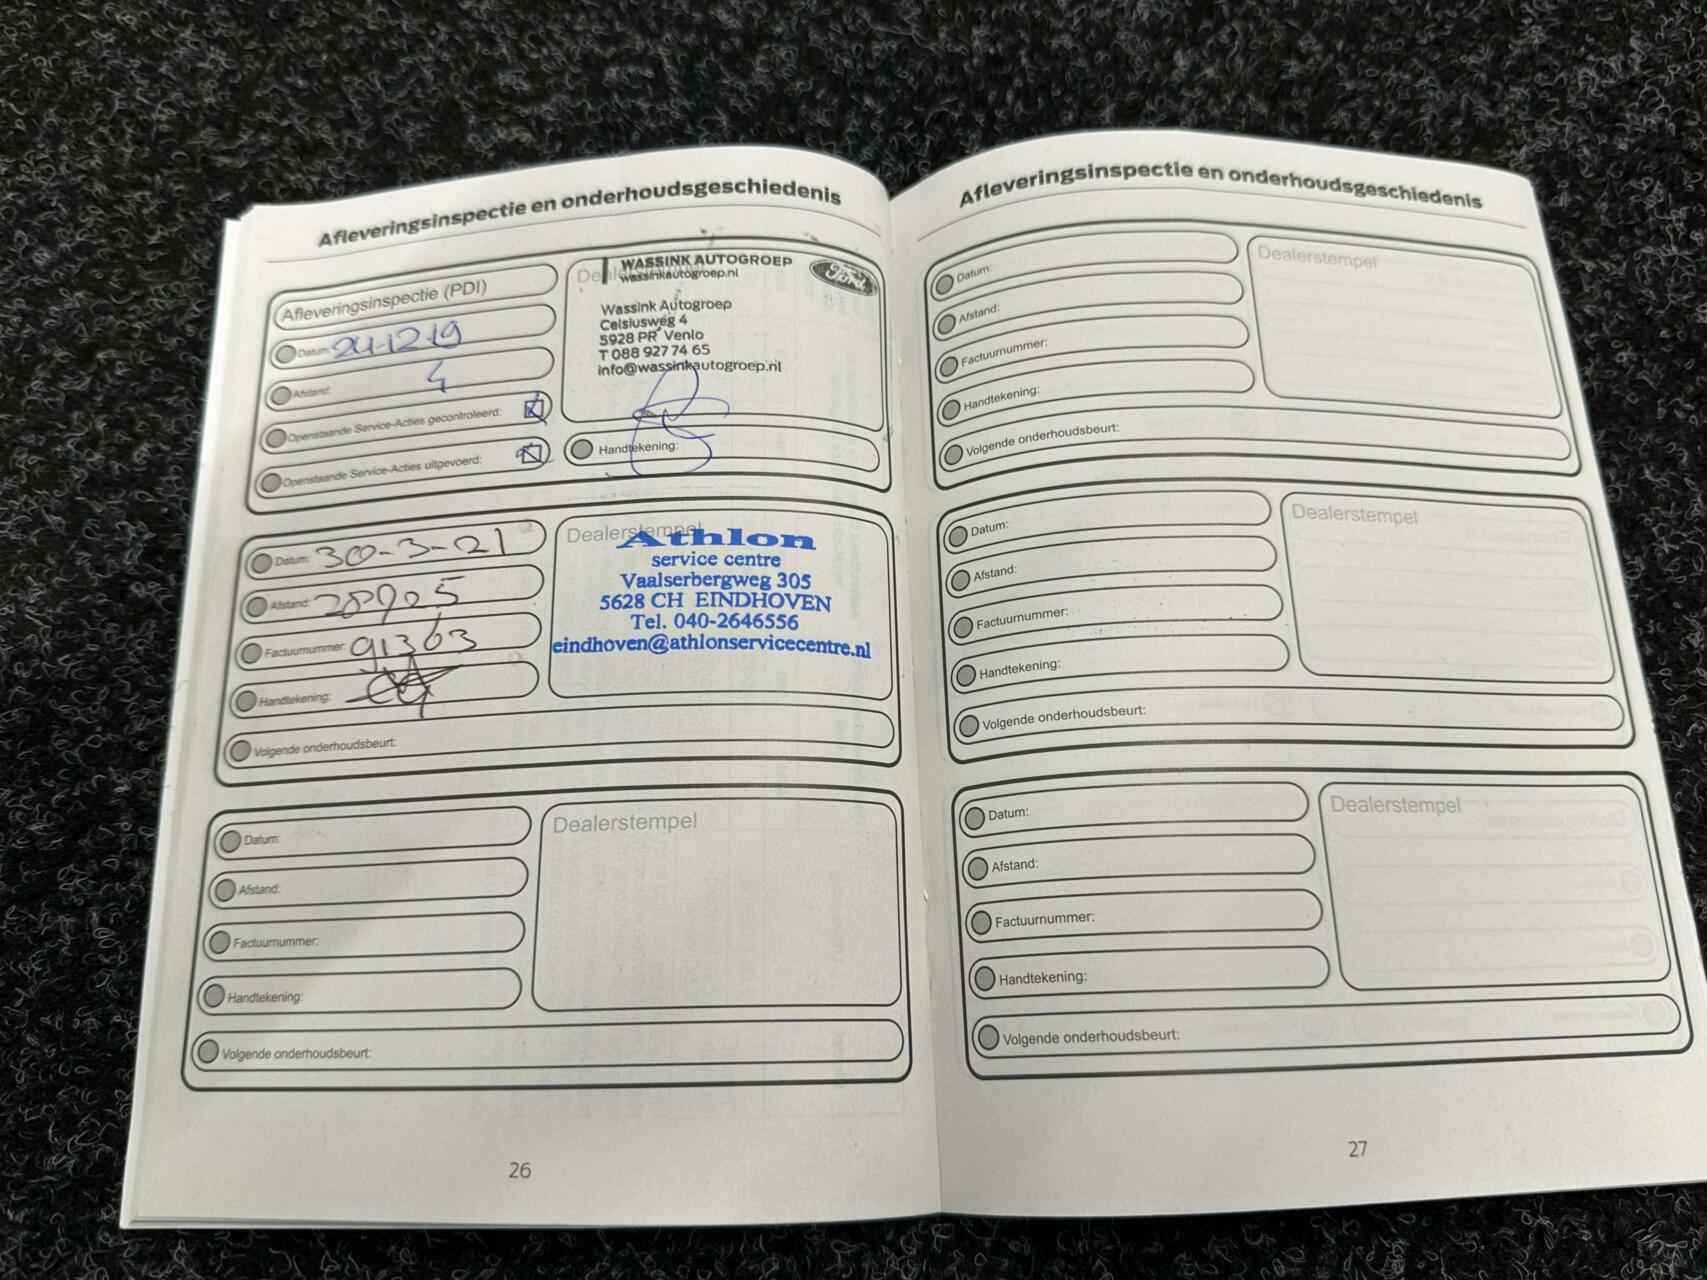 Afleveringsinspectie en onderhoudsgeschiedenis
Afleveringsinspectie (PDI)
Datum: 24-12-19
Afstand: 4
Openstaande Service-Acties gecontroleerd:
Openstaande Service-Acties uitgevoerd:
WASSINK AUTOGROEP
wassinkautogroep.nl
Ford
Wassink Autogroep
Celsiusweg 4
5928 PR Venlo
T 088 927 74 65
info@wassinkautogroep.nl
Handtekening:
Datum: 30-3-21
Afstand: 28905
Factuurnummer: 91363
Handtekening:
Volgende onderhoudsbeurt:
Dealerstempel
Athlon
service centre
Vaalserbergweg 305
5628 CH EINDHOVEN
Tel. 040-2646556
eindhoven@athlonservicecentre.nl
Datum:
Afstand:
Factuurnummer:
Handtekening:
Volgende onderhoudsbeurt:
Dealerstempel
26
Afleveringsinspectie en onderhoudsgeschiedenis
Datum:
Afstand:
Factuurnummer:
Handtekening:
Volgende onderhoudsbeurt:
Dealerstempel
Datum:
Afstand:
Factuurnummer:
Handtekening:
Volgende onderhoudsbeurt:
Dealerstempel
Datum:
Afstand:
Factuurnummer:
Handtekening:
Volgende onderhoudsbeurt:
Dealerstempel
27